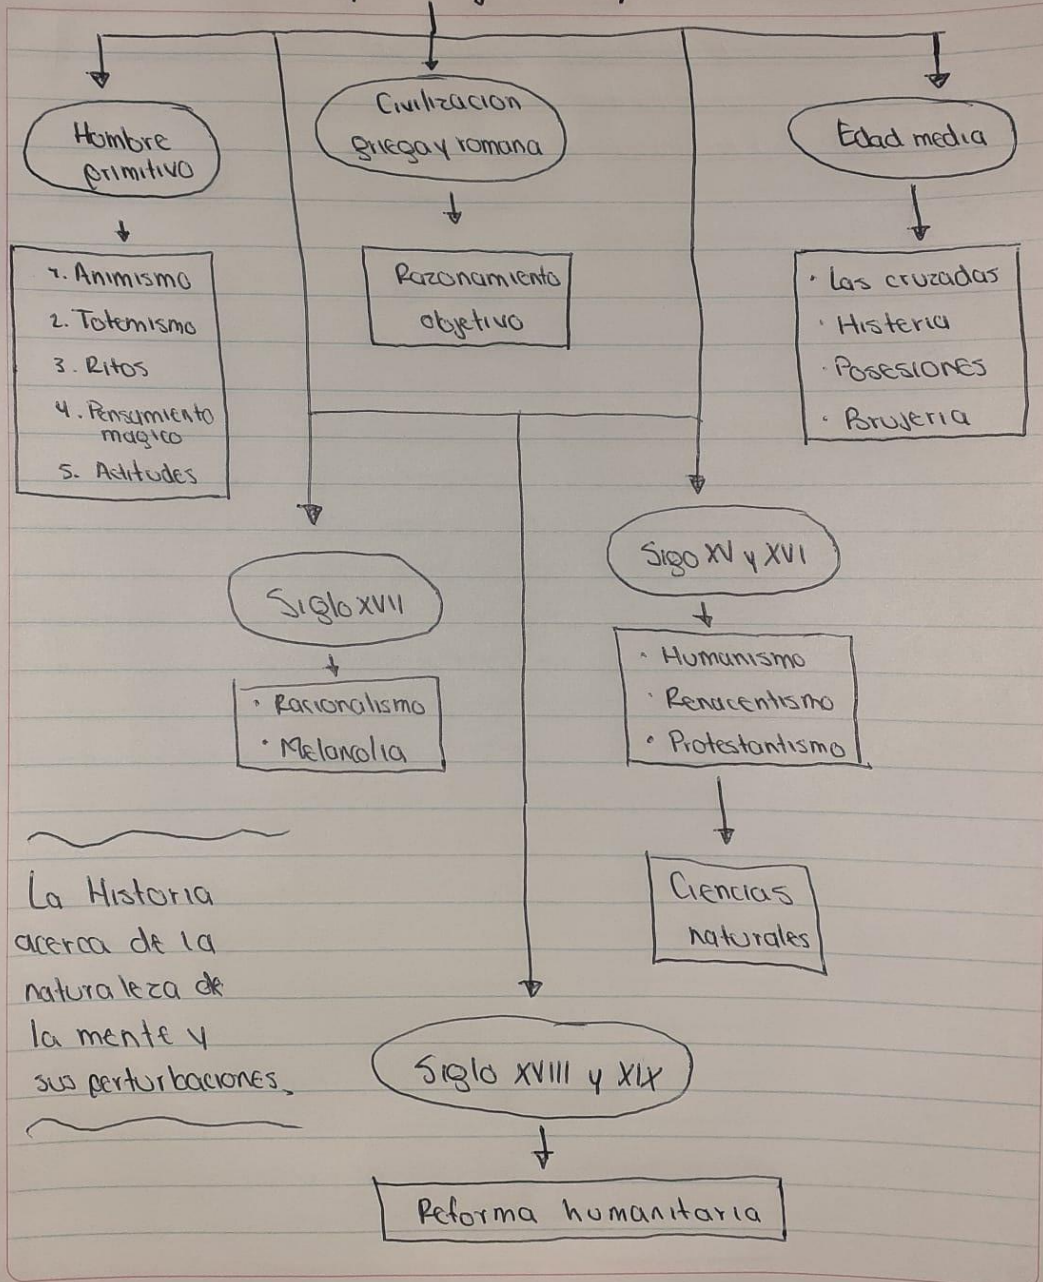 Hombre
primitivo
1. Animismo
2. Totemismo
3. Ritos
4. Pensamiento
magico
5. Actitudes
Civilizacion
griega y romana
Razonamiento
objetivo
Edad media
· Las cruzadas
· Histeria
· Posesiones
· Brujeria
Siglo XVII
· Racionalismo
· Melancolia
Sigo XV y XVI
· Humanismo
· Renacentismo
· Protestantismo
Ciencias
naturales
La Historia
acerca de la
naturaleza de
la mente y
sus perturbaciones.
Siglo XVIII y XIX
Reforma humanitaria